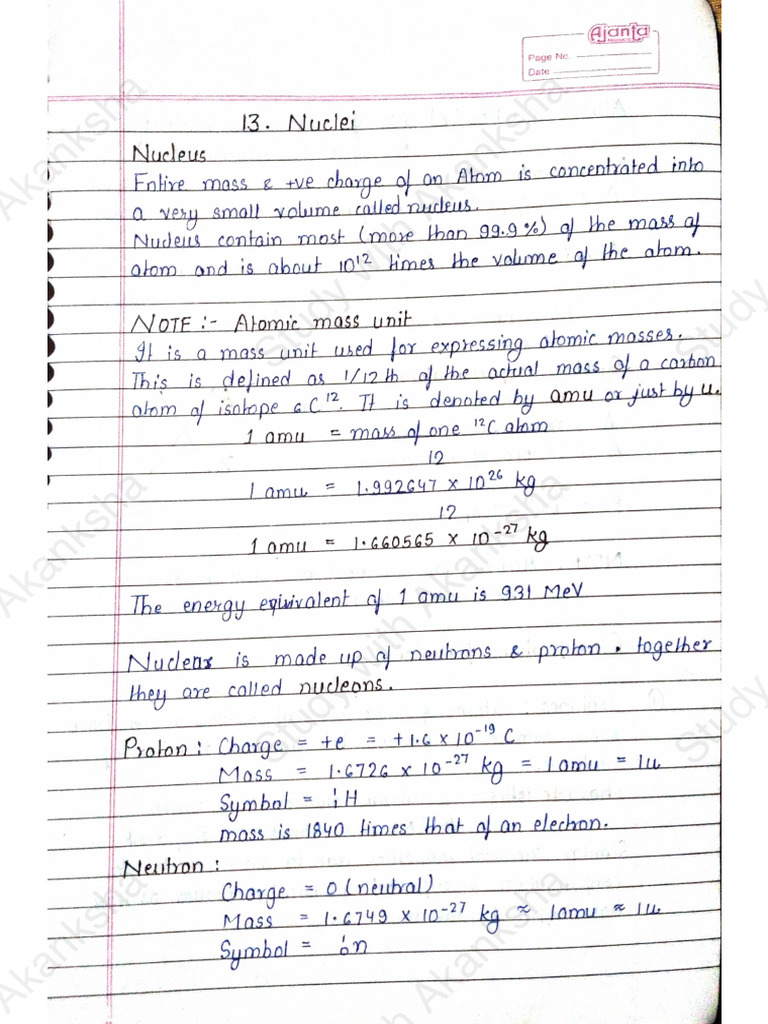 Ajanta
Page No.
Date
13. Nuclei
Nucleus
Entire mass & +ve charge of an Atom is concentrated into
a very small volume called nucleus.
Nucleus contain most (more than 99.9%) of the mass of
atom and is about 10¹² times the volume of the atom.
NOTE :- Atomic mass unit
It is a mass unit used for expressing atomic masses.
This is defined as 1/12th of the actual mass of a carbon
atom of isotope ₆C¹². It is denoted by amu or just by u.
1 amu = mass of one ¹²C atom
12
1 amu = 1.992647 × 10²⁶ kg
12
1 amu = 1.660565 × 10⁻²⁷ kg
The energy equivalent of 1 amu is 931 MeV
Nuclear is made up of neutrons & proton. together
they are called nucleons.
Proton : Charge = +e = +1.6 × 10⁻¹⁹ C
Mass = 1.6726 × 10⁻²⁷ kg = 1amu = 1u
Symbol = ¹₁H
mass is 1840 times that of an electron.
Neutron :
Charge = 0 (neutral)
Mass = 1.6749 × 10⁻²⁷ kg ≈ 1amu ≈ 1u
Symbol = ¹₀n
Study with Akanksha